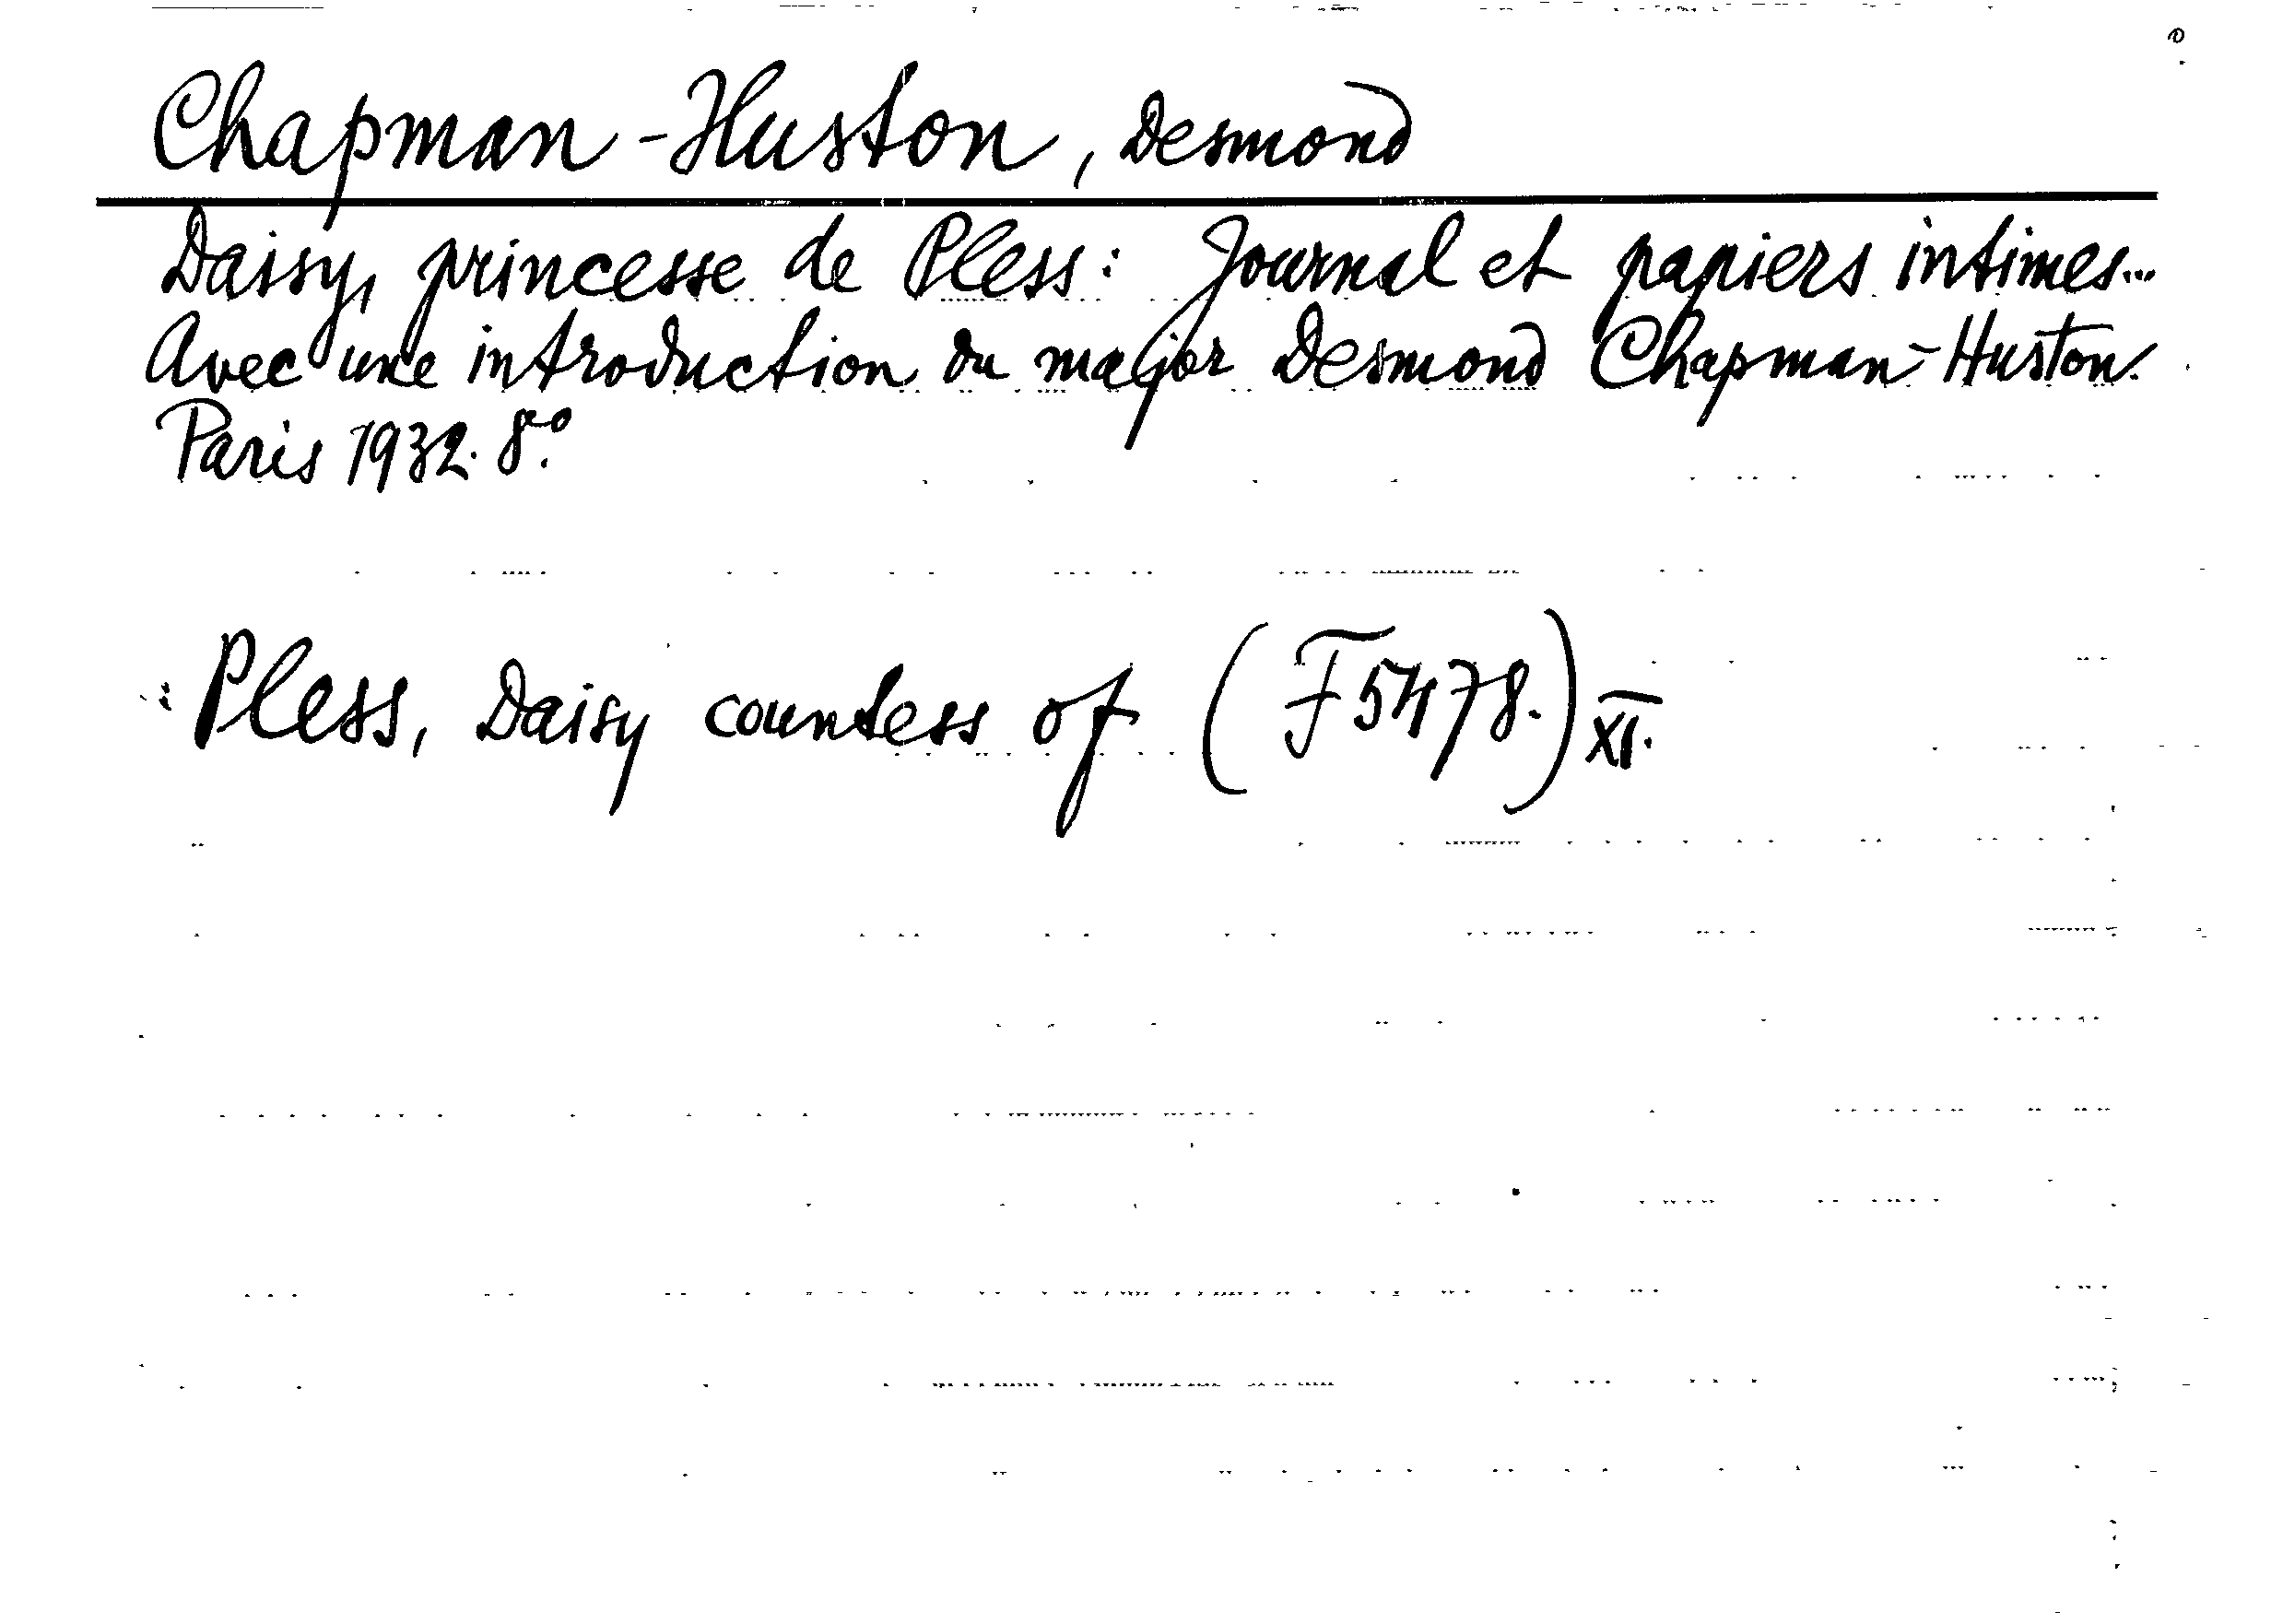 Chapman-Huston, Desmond
Daisy, princesse de Pless: Journal et papiers intimes...
Avec une introduction du major Desmond Chapman-Huston.
Paris 1932. 8.º
: Pless, Daisy countess of (F 5478.) XI.